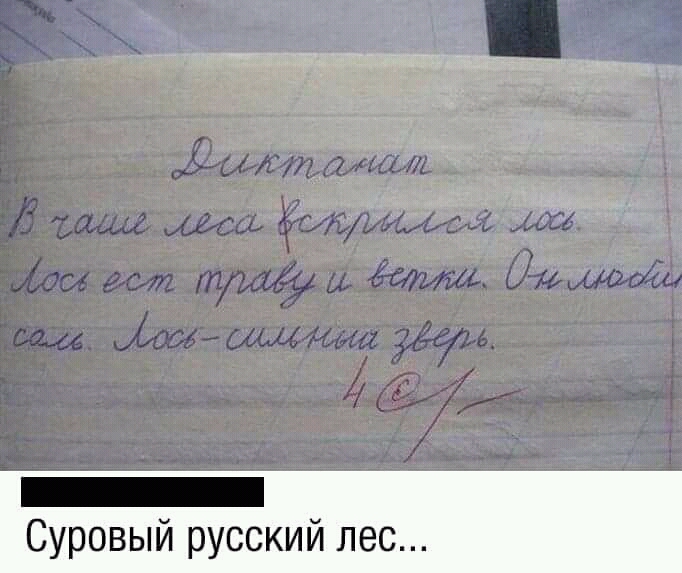 Диктанат
В чаше леса вскрылся лось.
Лось ест траву и ветки. Он люби
соль. Лось-сильныа зверь.
4 @/-
Суровый русский лес...